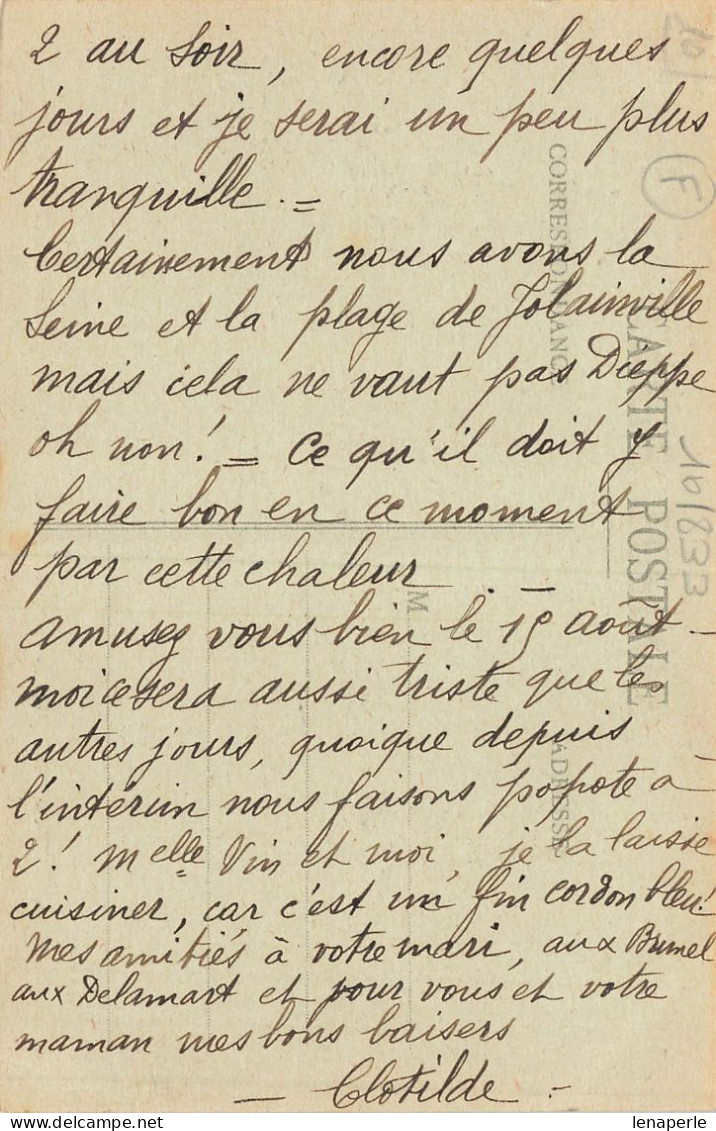 2 au soir, encore quelques
jours et je serai un peu plus
tranquille. =
Certainement nous avons la
Seine et la plage de Jolainville
mais cela ne vaut pas Dieppe
oh non! = Ce qu'il doit y
faire bon en ce moment
par cette chaleur
amusez vous bien le 15 août -
moi ce sera aussi triste que les
autres jours, quoique depuis
l'intérim nous faisons popote à
2! Melle Vin et moi, je la laisse
cuisiner, car c'est un fin cordon bleu!
Mes amitiés à votre mari, aux Brunel
aux Delamart et pour vous et votre
maman mes bons baisers
- Clotilde -
CARTE POSTALE
CORRESPONDANCE
ADRESSE
M
F
10/833
lenaperle